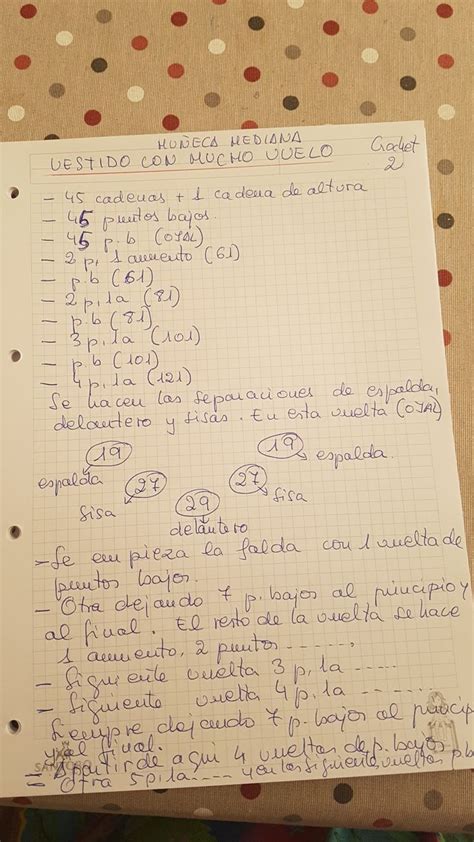 MUÑECA MEDIANA
VESTIDO CON MUCHO VUELO
Crochet
2
- 45 cadenas + 1 cadena de altura
- 45 puntos bajos.
- 45 p.b (OJAL)
- 2 p, 1 aumento (61)
- p.b (61)
- 2 p, 1a (81)
- p.b (81)
- 3 p, 1a (101)
- p.b (101)
- 4 p, 1a (121)
Se hacen las separaciones de espalda,
delantero y sisas. En esta vuelta (OJAL)
19
19
espalda
espalda.
27
27
sisa
sisa
29
delantero
- Se empieza la falda con 1 vuelta de
puntos bajos.
- Otra dejando 7 p. bajos al principio y
al final. El resto de la vuelta se hace
1 aumento, 2 puntos ......
- Siguiente vuelta 3 p, 1a .....
- Siguiente vuelta 4 p, 1a ......
Siempre dejando 7 p. bajos al princip
y al final.
- A partir de aquí 4 vueltas de p. bajos
= Otra 5 p 1a .... y en las siguiente vueltas p.b